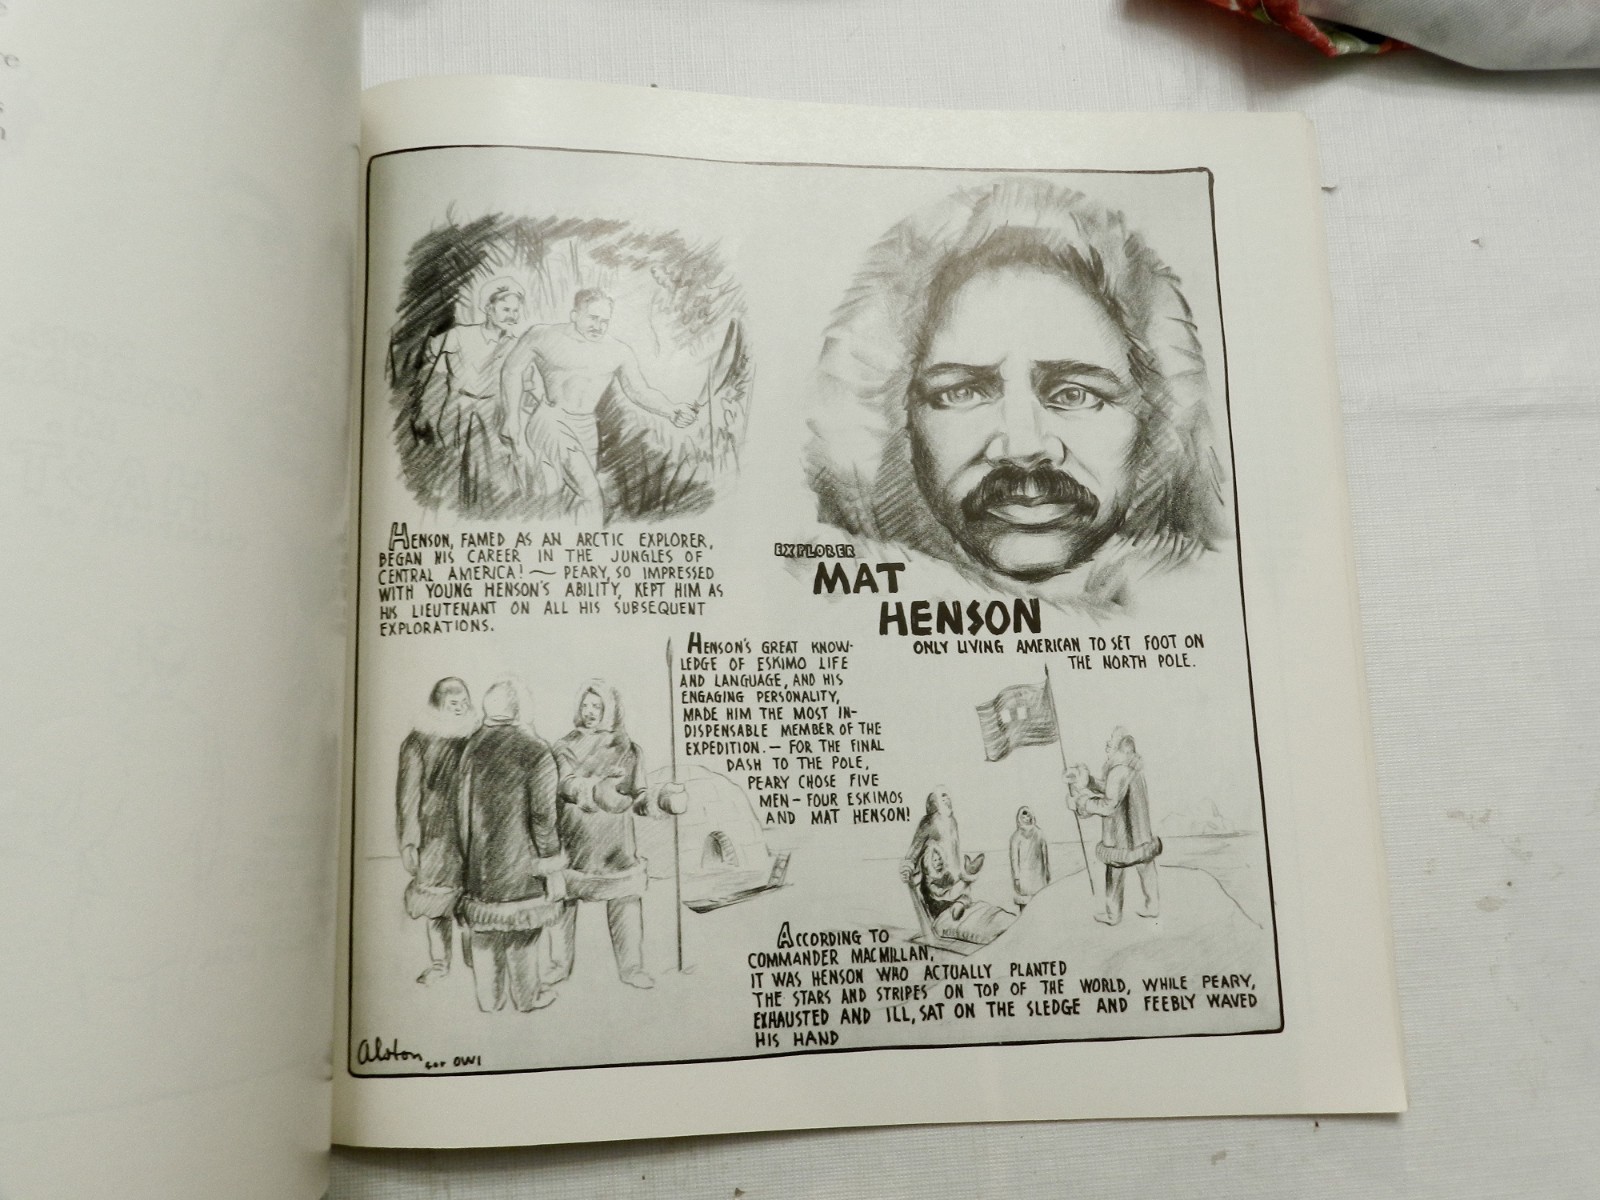 HENSON, FAMED AS AN ARCTIC EXPLORER,
BEGAN HIS CAREER IN THE JUNGLES OF
CENTRAL AMERICA! — PEARY, SO IMPRESSED
WITH YOUNG HENSON'S ABILITY, KEPT HIM AS
HIS LIEUTENANT ON ALL HIS SUBSEQUENT
EXPLORATIONS.
EXPLORER
MAT
HENSON
ONLY LIVING AMERICAN TO SET FOOT ON
THE NORTH POLE.
HENSON'S GREAT KNOW-
LEDGE OF ESKIMO LIFE
AND LANGUAGE, AND HIS
ENGAGING PERSONALITY,
MADE HIM THE MOST IN-
DISPENSABLE MEMBER OF THE
EXPEDITION. — FOR THE FINAL
DASH TO THE POLE,
PEARY CHOSE FIVE
MEN - FOUR ESKIMOS
AND MAT HENSON!
ACCORDING TO
COMMANDER MACMILLAN,
IT WAS HENSON WHO ACTUALLY PLANTED
THE STARS AND STRIPES ON TOP OF THE WORLD, WHILE PEARY,
EXHAUSTED AND ILL, SAT ON THE SLEDGE AND FEEBLY WAVED
HIS HAND
Alston for OWI